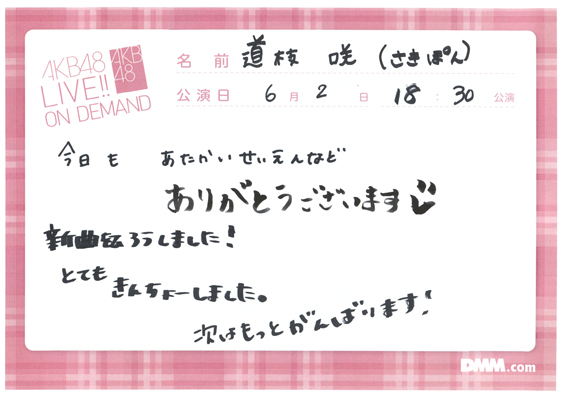 AKB48
LIVE!!
ON DEMAND
AKB
48
名前 道枝 咲 (さきぽん)
公演日 6月2日 18:30 公演
今日も あたかいせいえんなど
ありがとうございます
新曲披ろうしました!
とても
きんちょーしました。
次はもっとがんばります!
DMM.com